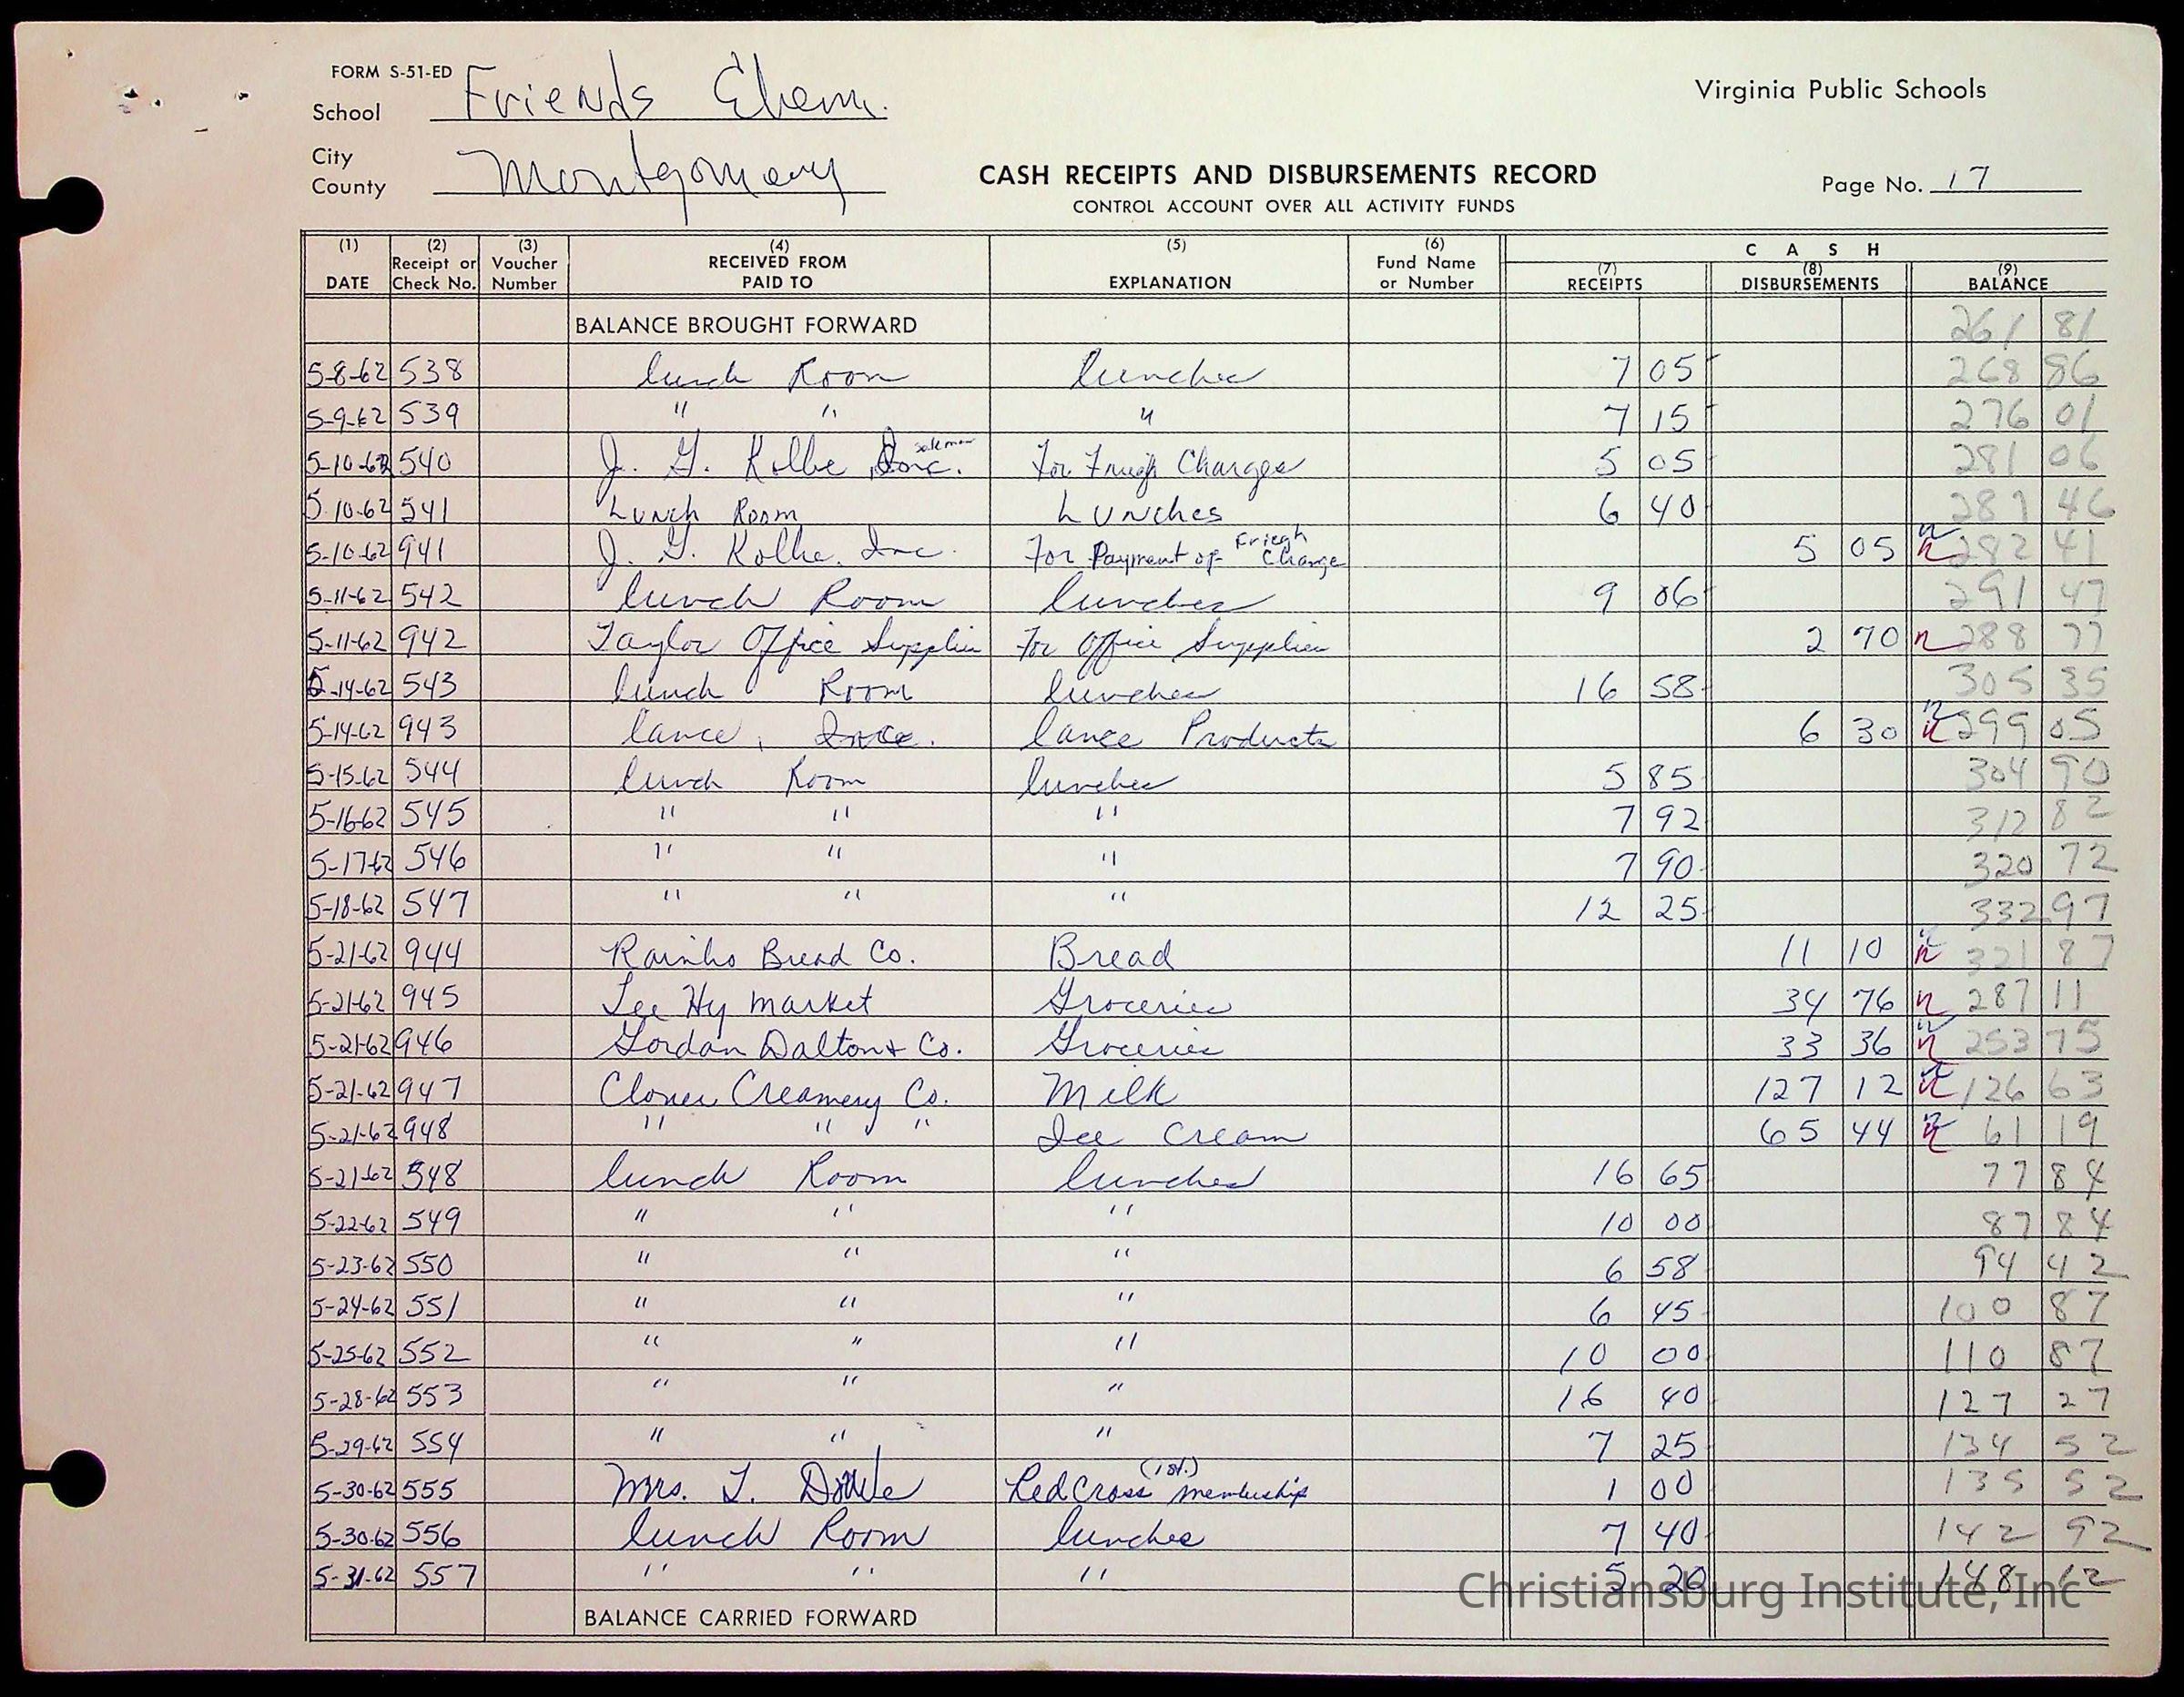 FORM S-51-ED
School Friends Elem.
Virginia Public Schools
City
County Montgomery
CASH RECEIPTS AND DISBURSEMENTS RECORD
Page No. 17
CONTROL ACCOUNT OVER ALL ACTIVITY FUNDS
(1) (2) (3) (4) (5) (6) C A S H
DATE Receipt or Check No. Voucher Number RECEIVED FROM PAID TO EXPLANATION Fund Name or Number (7) RECEIPTS (8) DISBURSEMENTS (9) BALANCE
BALANCE BROUGHT FORWARD 261 81
5-8-62 538 lunch Room lunches 7 05 268 86
5-9-62 539 " " " 7 15 276 01
5-10-62 540 J. G. Kolbe Inc. For Charges 5 05 281 06
5-10-62 541 Lunch Room Lunches 6 40 287 46
5-10-62 941 J. G. Kolbe. Inc. For Payment of Friegh Charge 5 05 282 41
5-11-62 542 lunch Room lunches 9 06 291 47
5-11-62 942 Taylor Office Supplies For Office Supplies 2 70 288 77
5-14-62 543 lunch Room lunches 16 58 305 35
5-14-62 943 lance, Ince. lance Products 6 30 299 05
5-15-62 544 lunch Room lunches 5 85 304 90
5-16-62 545 " " " 7 92 312 82
5-17-62 546 " " " 7 90 320 72
5-18-62 547 " " " 12 25 332 97
5-21-62 944 Rainbo Bread Co. Bread 11 10 321 87
5-21-62 945 Lee Hy Market Groceries 34 76 287 11
5-21-62 946 Gordan Dalton & Co. Groceries 33 36 253 75
5-21-62 947 Clover Creamery Co. Milk 127 12 126 63
5-21-62 948 " " " Ice Cream 65 44 61 19
5-21-62 548 lunch Room lunches 16 65 77 84
5-22-62 549 " " " 10 00 87 84
5-23-62 550 " " " 6 58 94 42
5-24-62 551 " " " 6 45 100 87
5-25-62 552 " " " 10 00 110 87
5-28-62 553 " " " 16 40 127 27
5-29-62 554 " " " 7 25 134 52
5-30-62 555 Mrs. I. Red Cross (1st.) membership 1 00 135 52
5-30-62 556 lunch Room lunches 7 40 142 92
5-31-62 557 " " " 5 20 148 12
Christiansburg Institute, Inc
BALANCE CARRIED FORWARD